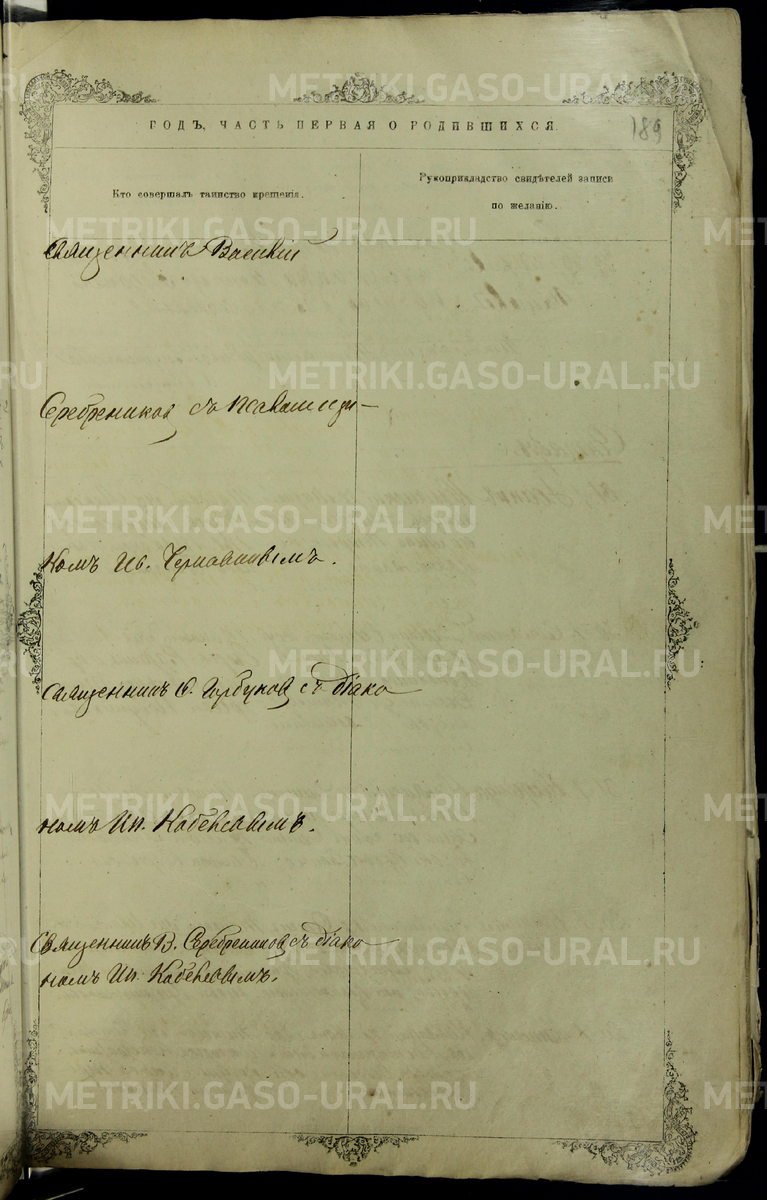 METRIKI.GASO-URAL.RU
ГОДЪ, ЧАСТЬ ПЕРВАЯ О РОДИВШИХСЯ.
189
Кто совершалъ таинство крещенія.
Рукоприкладство свидѣтелей записи
по желанію.
Священникъ Василій
Серебрениковъ съ псаломщи-
комъ Ив. Чернавинымъ.
Священникъ Горбуновъ съ діако
номъ Ин.
Священникъ В. Серебрениковъ съ діако
номъ Ин.